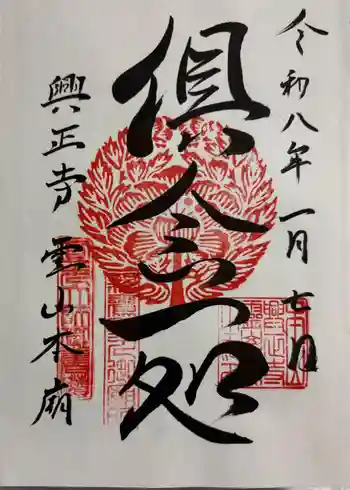 令和八年一月七日
俱会一処
興正寺 霊山本廟